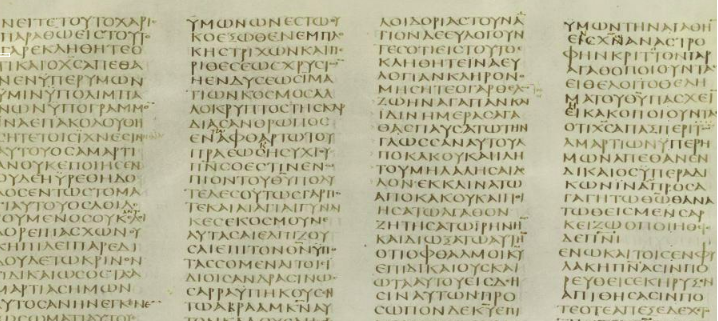 ΝΕΙΤΕΤΟΥΤΟΧΑΡΙ
ΠΑΡΑΘΩΕΙΣΤΟΥΤ
ΓΑΡΕΚΛΗΘΗΤΕΟ
ΤΙΚΑΙΟΧΣΑΠΕΘΑ
ΝΕΝΥΠΕΡΥΜΩΝ
ΥΜΙΝΥΠΟΛΙΜΠΑ
ΝΩΝΥΠΟΓΡΑΜΜ
ΙΝΑΕΠΑΚΟΛΟΥΘΗ
ΣΗΤΕΤΟΙΣΙΧΝΕΣΙΝ
ΑΥΤΟΥΟΣΑΜΑΡΤΙ
ΑΝΟΥΚΕΠΟΙΗΣΕΝ
ΟΥΔΕΗΥΡΕΘΗΔΟ
ΛΟΣΕΝΤΩΣΤΟΜΑ
ΤΙΑΥΤΟΥΟΣΛΟΙΔ
ΟΥΜΕΝΟΣΟΥΚ
ΔΟΡΕΙΠΑΣΧΩΝ
ΚΗΠΙΛΕΙΠΑΡΕΔΙ
ΔΟΥΔΕΤΩΚΡΙΝ
ΤΙΔΙΚΑΙΩΣΟΣΤΑΣ
ΜΑΡΤΙΑΣΗΜΩΝ
ΑΥΤΟΣΑΝΗΝΕΓΚΕΝ
ΥΜΩΝΩΝΕΣΤΩ
ΚΟΕΞΩΘΕΝΕΜΠΛ
ΚΗΣΤΡΙΧΩΝΚΑΙΠ
ΡΙΘΕΣΕΩΣΧΡΥΣΙ
ΗΕΝΔΥΣΕΩΣΙΜΑ
ΤΙΩΝΚΟΣΜΟΣΑΛ
ΛΟΚΡΥΠΤΟΣΤΗΣΚΑΡ
ΔΙΑΣΑΝΘΡΩΠΟΣ
ΕΝΤΩΑΦΘΑΡΤΩΤΟΥ
ΠΡΑΕΩΣΗΣΥΧΙΟΥ
ΠΝΣΟΕΣΤΙΝΕΝ
ΠΙΟΝΤΟΥΘΥΠΟΛΥ
ΤΕΛΕΣΟΥΤΩΣΓΑΡΠ
ΤΕΚΑΙΑΙΑΓΙΑΙΓΥΝΑΙ
ΚΕΣΕΚΟΣΜΟΥΝ
ΑΥΤΑΣΑΙΕΛΠΙΖΟΥ
ΣΑΙΕΠΙΤΟΝΘΝΥΠΟ
ΤΑΣΣΟΜΕΝΑΙΤΟΙΣΙ
ΔΙΟΙΣΑΝΔΡΑΣΙΝΩΣ
ΣΑΡΡΑΥΠΗΚΟΥΣΕΝ
ΤΩΑΒΡΑΑΜΚΝΑΥ
ΛΟΙΔΟΡΙΑΣΤΟΥΝΑ
ΤΙΟΝΔΕΕΥΛΟΓΟΥΝ
ΤΕΣΟΤΙΕΙΣΤΟΥΤΟ
ΚΛΗΘΗΤΕΙΝΑΕΥ
ΛΟΓΙΑΝΚΛΗΡΟΝΟ
ΜΗΣΗΤΕΟΓΑΡΘΕ
ΖΩΗΝΑΓΑΠΑΝΚΑΙ
ΙΔΙΝΗΜΕΡΑΣΑΓΑ
ΘΑΣΠΑΥΣΑΤΩΤΗΝ
ΓΛΩΣΣΑΝΑΥΤΟΥΑ
ΠΟΚΑΚΟΥΚΑΙΧΙΛΗ
ΤΟΥΜΗΛΑΛΗΣΑΙΔ
ΛΟΝΕΚΚΛΙΝΑΤΩ
ΑΠΟΚΑΚΟΥΚΑΙΠΟΙ
ΗΣΑΤΩΑΓΑΘΟΝ
ΖΗΤΗΣΑΤΩΙΡΗΝΗΝ
ΚΑΙΔΙΩΞΑΤΩΑΥΤΗ
ΟΤΙΟΦΘΑΛΜΟΙΚΥ
ΕΠΙΔΙΚΑΙΟΥΣΚΑΙ
ΩΤΑΑΥΤΟΥΕΙΣΔΕΗ
ΣΙΝΑΥΤΩΝΠΡΟ
ΣΩΠΟΝΔΕΚΥΕΠΙ
ΥΜΩΝΤΗΝΑΓΑΘΗ
ΕΝΧΩΑΝΑΣΤΡΟ
ΦΗΝΚΡΙΤΤΟΝΓΑΡ
ΑΓΑΘΟΠΟΙΟΥΝΤΑΣ
ΕΙΘΕΛΟΙΤΟΘΕΛΗ
ΜΑΤΟΥΘΥΠΑΣΧΕΙ
ΕΙΚΑΚΟΠΟΙΟΥΝΤΑΣ
ΟΤΙΧΣΑΠΑΞΠΕΡΙ
ΑΜΑΡΤΙΩΝΥΠΕΡΗ
ΜΩΝΑΠΕΘΑΝΕΝ
ΔΙΚΑΙΟΣΥΠΕΡΑΔΙ
ΚΩΝΙΝΑΠΡΟΣΑ
ΓΑΓΗΤΩΘΩΘΑΝΑ
ΤΩΘΕΙΣΜΕΝΣΑΡ
ΚΕΙΖΩΟΠΟΙΗΘ
ΔΕΠΝΙ
ΕΝΩΚΑΙΤΟΙΣΕΝΦΥ
ΛΑΚΗΠΝΑΣΙΝΠΟ
ΡΕΥΘΕΙΣΕΚΗΡΥΞΕΝ
ΑΠΙΘΗΣΑΣΙΝΠΟ
ΤΕΟΤΕΑΠΕΞΕΔΕΧΕ